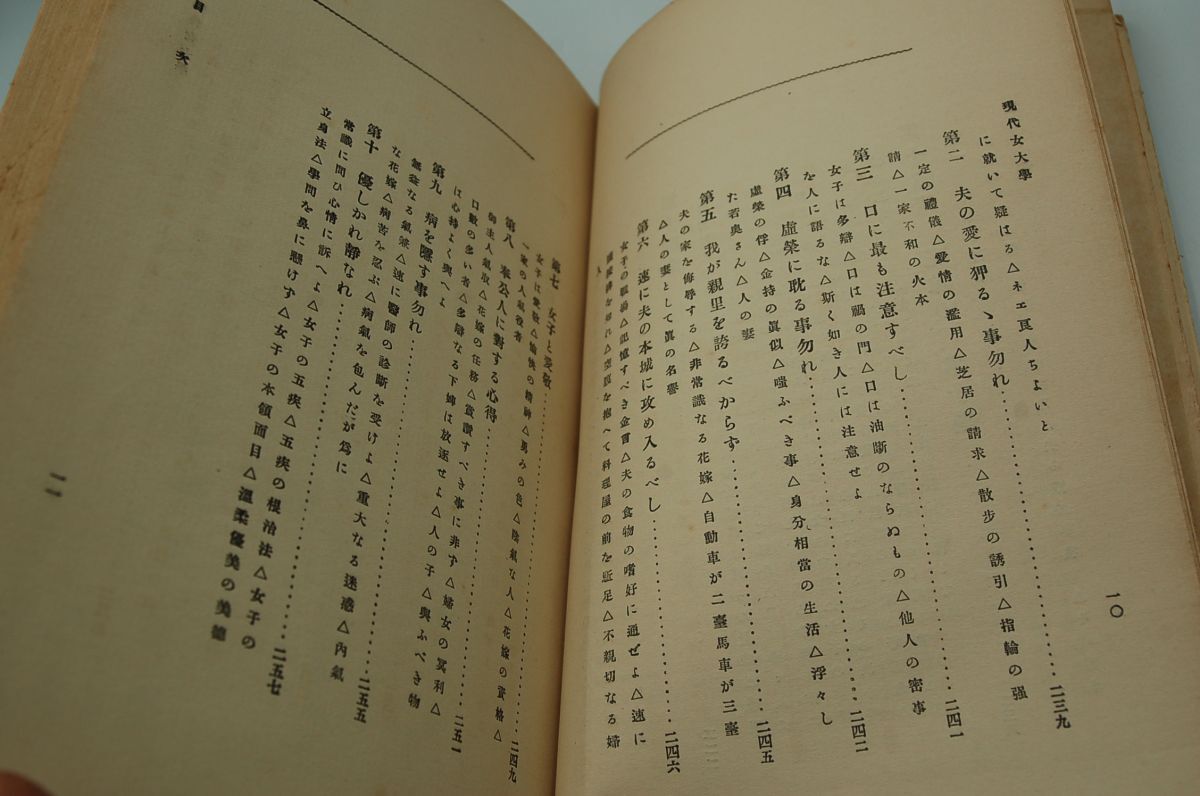 現代女大學
一〇
に就いて疑はる△ネエ良人ちよいと
第二 夫の愛に狎るゝ事勿れ……二三九
一定の禮儀△愛情の濫用△芝居の請求△散步の誘引△指輪の强
請△一家不和の火本
第三 口に最も注意すべし……二四一
女子は多辯△口は禍の門△口は油斷のならぬもの△他人の密事
を人に語るな△斯く如き人には注意せよ
第四 虛榮に耽る事勿れ……二四二
虛榮の俘△金持の眞似△嗤ふべき事△身分相當の生活△浮々し
た若奥さん△人の妻
第五 我が親里を誇るべからず……二四五
夫の家を侮辱する△非常識なる花嫁△自動車が二臺馬車が三臺
△人の妻として眞の名譽
第六 速に夫の本城に攻め入るべし……二四六
女子の戰場△記憶すべき金言△夫の食物の嗜好に通ぜよ△速に
を知れ△空腹を抱へて料理屋の前を△不親切なる婦
人
第七 女子と愛敬……二四九
女子は愛敬△愉快の精神△男みの色△陰氣な人△花嫁の資格△
一家の人氣役者
第八 奉公人に對する心得……二五一
御主人氣取△花嫁の任務△すべき事に非ず△婦女の冥利△
口數の多い者△多辯なる下婢は放逐せよ△人の子△與ふべき物
は心持よく與へよ
第九 病を隱す事勿れ……二五五
無益なる氣兼△速に醫師の診斷を受けよ△重大なる迷惑△內氣
な花嫁△病苦を忍ぶ△病氣を包んだが爲に
第十 優しかれ靜なれ……二五七
常識に問ひ心情に訴へよ△女子の五疾△五疾の根治法△女子の
立身法△學問を鼻に懸けず△女子の本領面目△溫柔優美の美德
目 次
一一